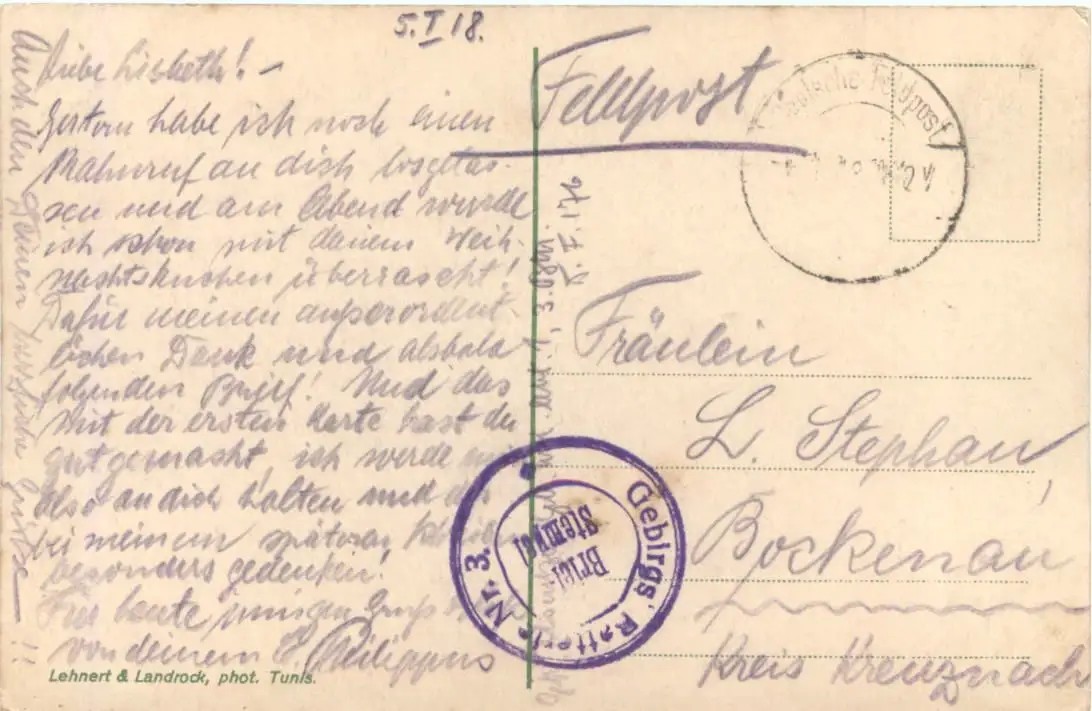 5.I 18.
Liebe Lisbeth! –
Gestern habe ich noch einen
Mahnruf an dich losgelas-
sen und am Abend wurde
ich schon mit deinem Weih-
nachtskuchen überrascht!
Dafür meinen außerordent-
lichen Dank und alsbald
folgenden Brief! Und das
mit der ersten Karte hast du
gut gemacht, ich werde
also an dich halten und
bei meinem späteren
besonders gedenken.
Für heute innigen Gruß
von deinem Philippus
Auch den Deinen herzliche Grüße !!
Lehnert & Landrock, phot. Tunis.
Feldpost
Deutsche Feldpost
Fräulein
L. Stephan
Bockenau
Kreis Kreuznach
Gebirgs Batterie Nr. 3.
Brief
Stempel